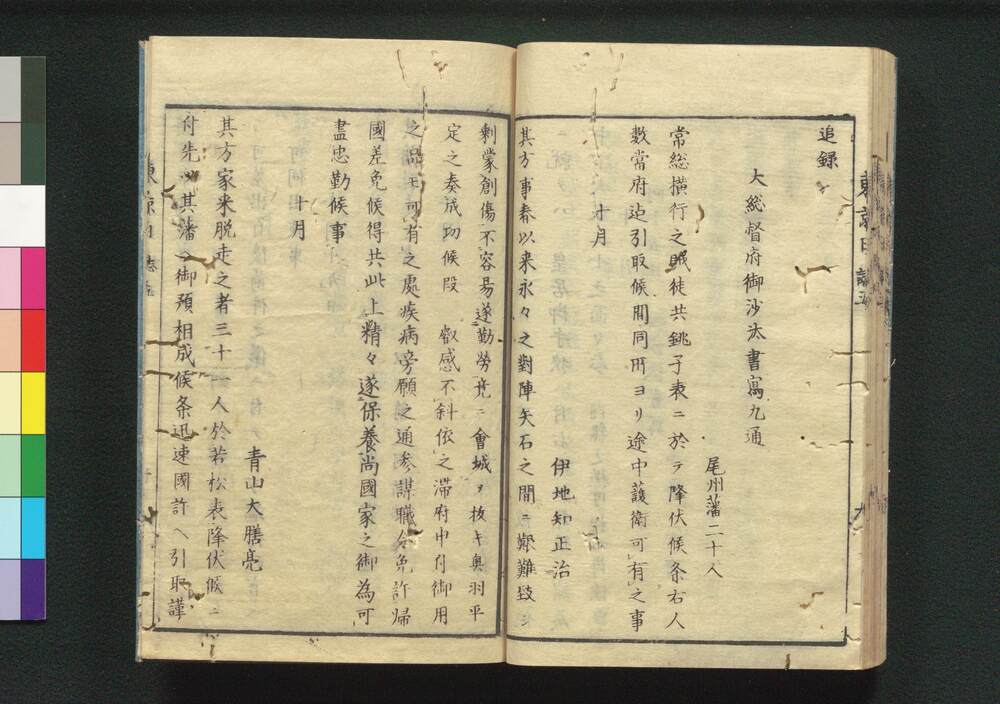 追録
大総督府御沙汰書寫九通
尾州藩二十人
常総横行之賊徒共銚子表ニ於テ降伏候条右人
数當府迠引取候間同所ヨリ途中護衛可有之事
十月
伊地知正治
其方事春以来永々之對陣矢石之間ニ艱難致シ
剰蒙創傷不容易遂勤勞竟ニ會城ヲ抜キ奥羽平
定之奏成功候段 叡感不斜依之滞府中身御用
之品モ可有之處疾病旁願之通参謀職令免許歸
國差免候得共此上精々遂保養尚國家之御為可
盡忠勤候事
十月
青山大膳亮
其方家来脱走之者三十一人於若松表降伏候ニ
付先以其藩へ御預相成候条迅速國許ヘ引取謹
東京日誌五
九